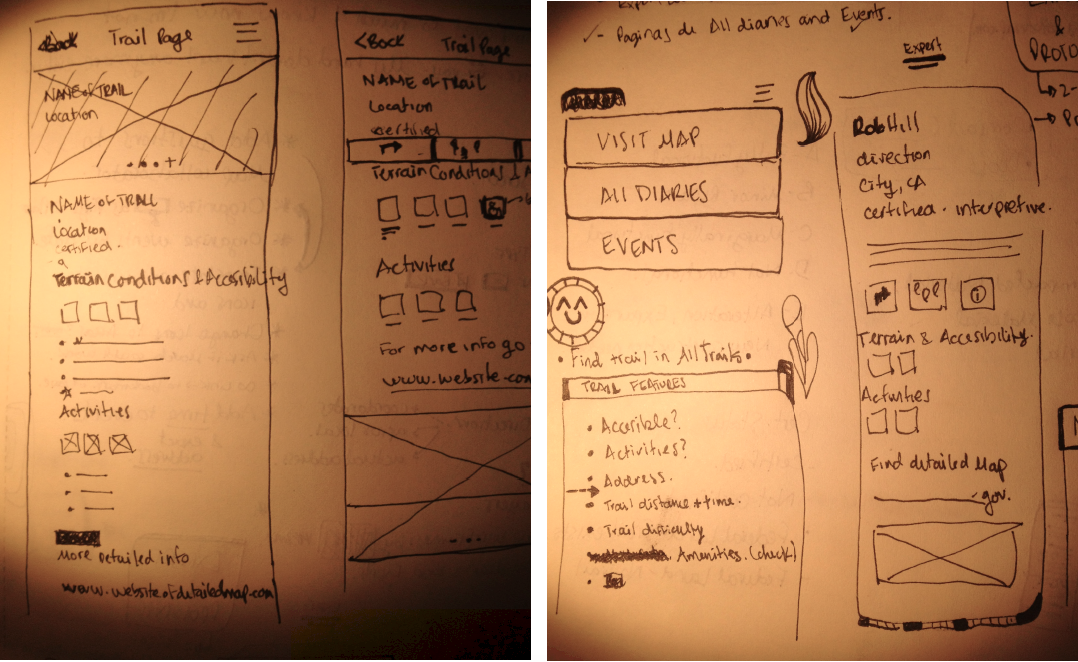 <Back Trail Page
NAME of TRAIL
Location
NAME OF TRAIL
Location
certified.
Terrain Conditions & Accesibility
Activities
More Detailed info
www.websiteofdetailedmap.com
<Back Trail Page
NAME OF TRAIL
Location
certified
Terrain Conditions & A
Activities
For more info go
www.website.com
- Paginas de All diaries and Events.
Expert
VISIT MAP
All DIARIES
EVENTS
• Find trail in AllTrails •
TRAIL FEATURES
• Accesible?
• Activities?
• Address.
• Trail distance + time.
• Trail difficulty
Amenities. (check)
& PROTO
RobHill
direction
City, CA
certified - interpretive.
Terrain & Accesibility.
Activities
Find detailed Map
.gov.